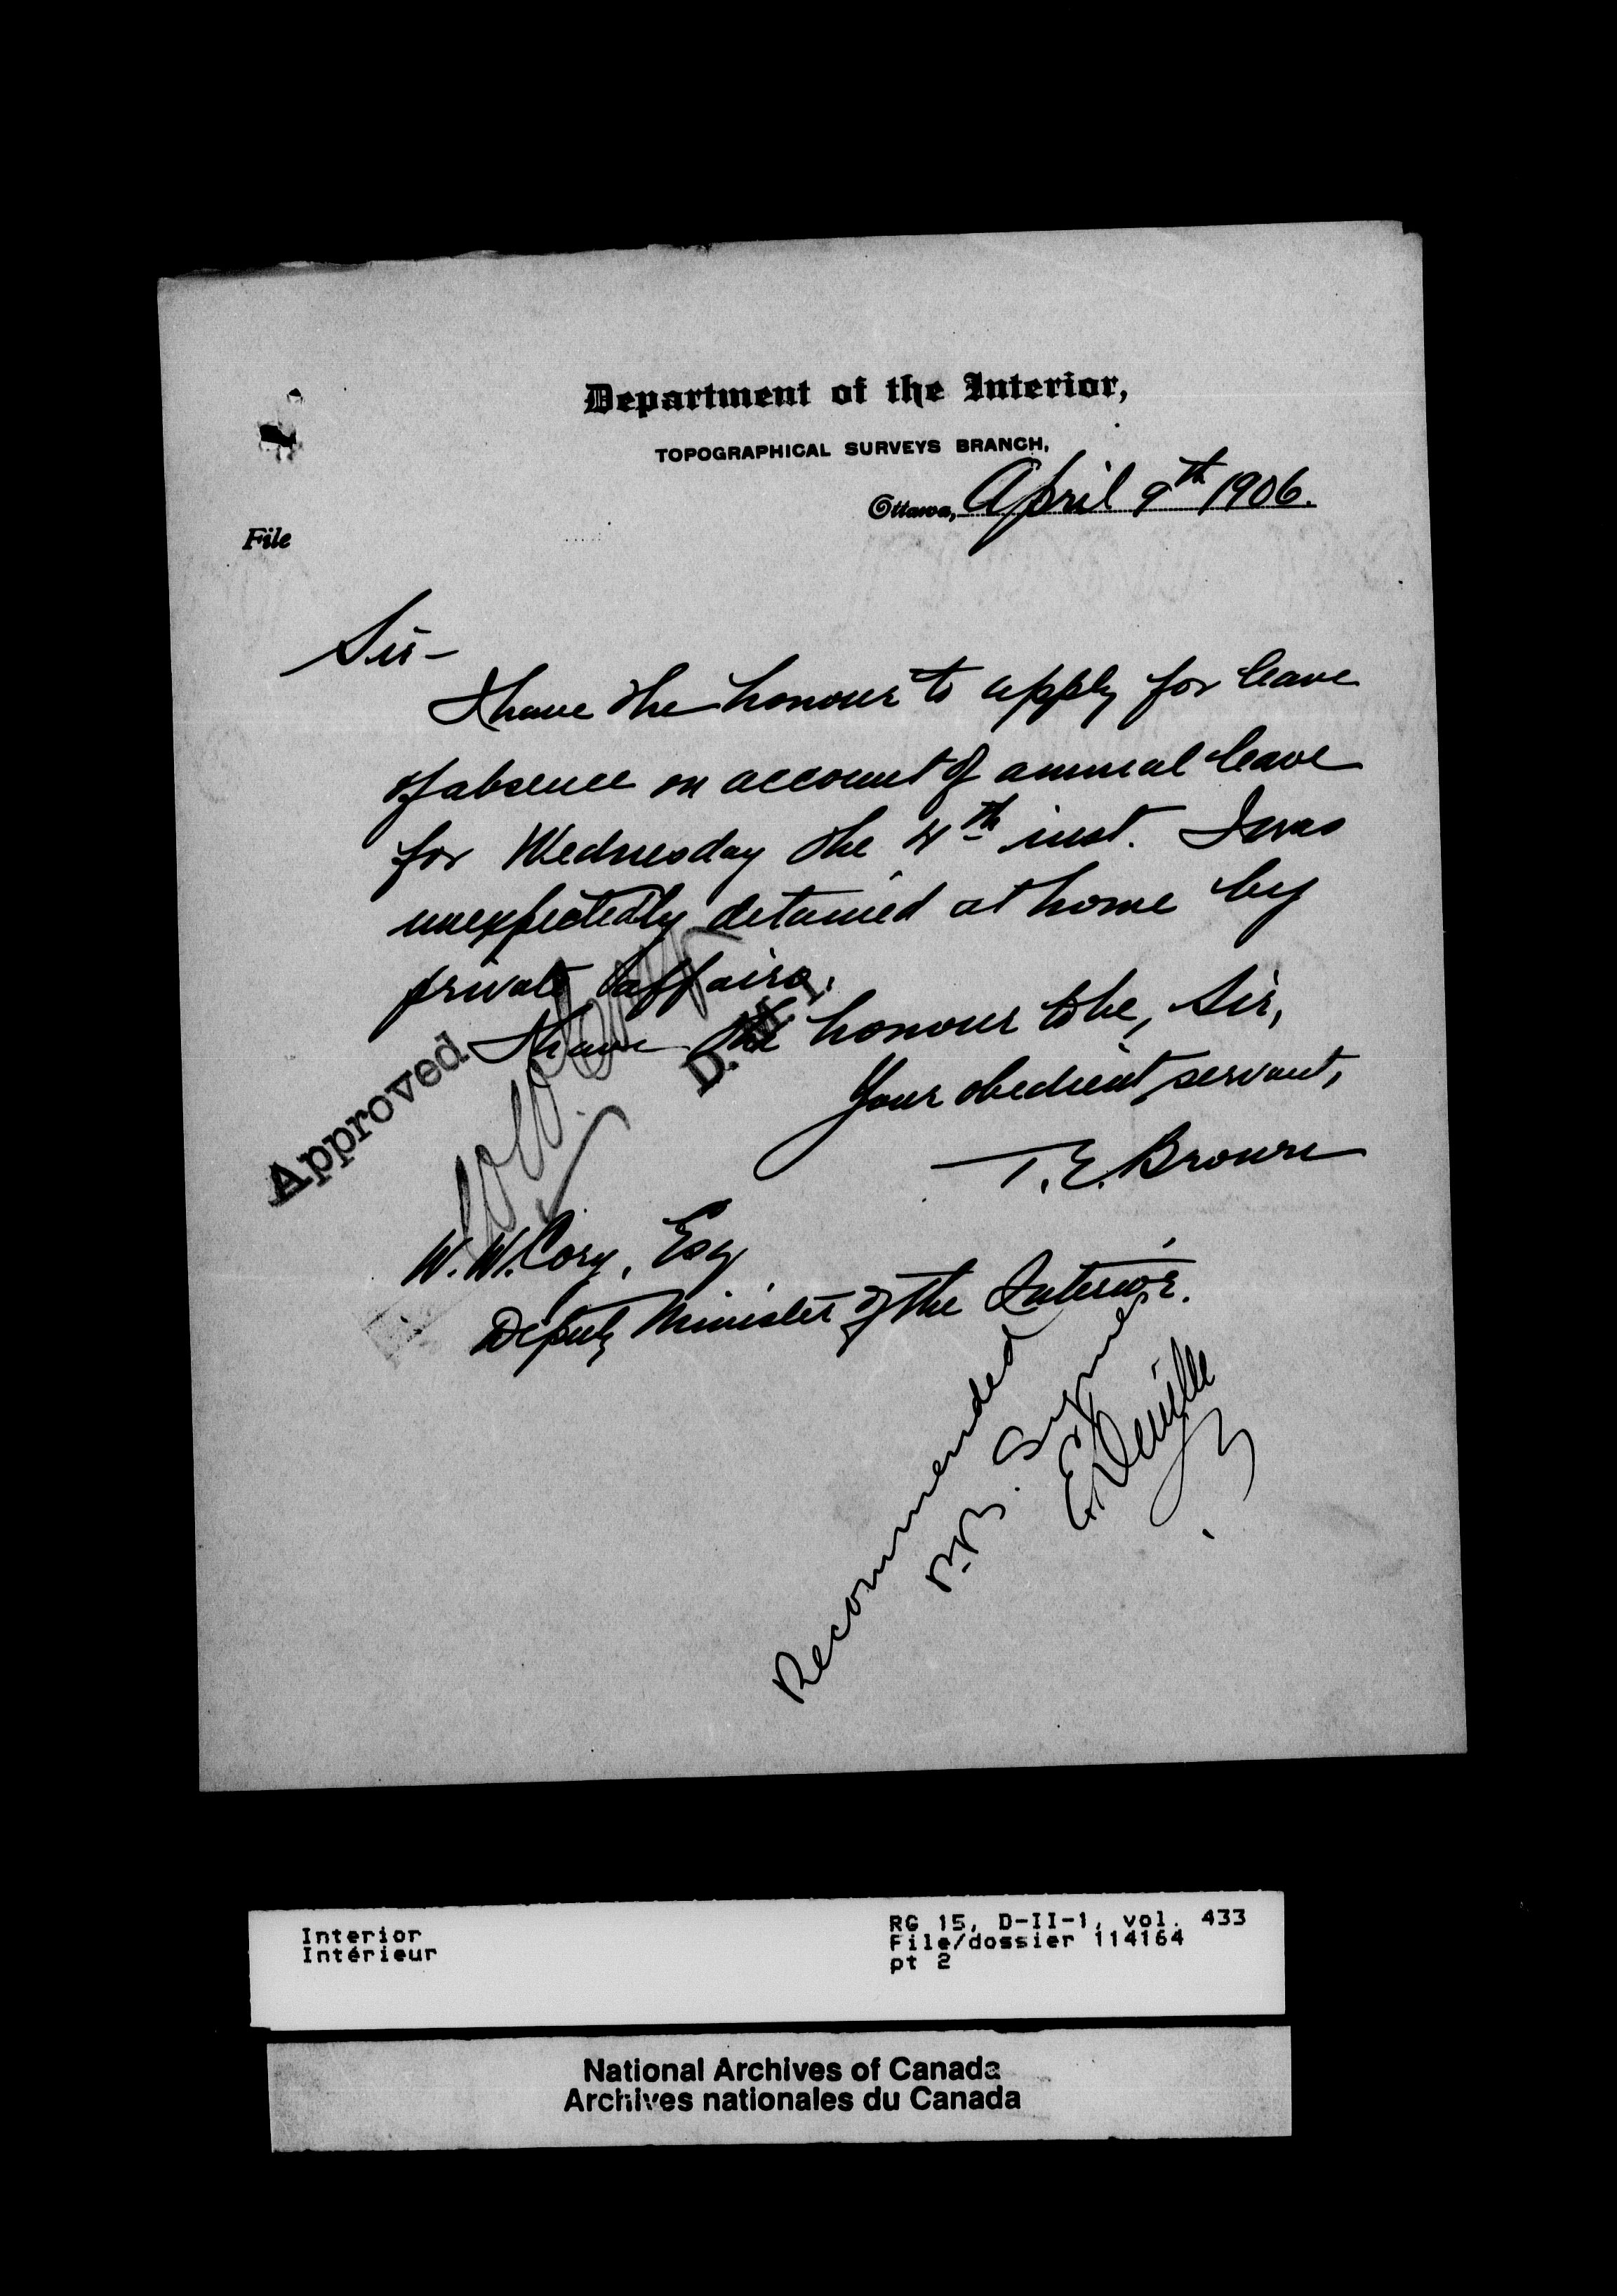 Department of the Interior,
TOPOGRAPHICAL SURVEYS BRANCH,
Ottawa, April 9th 1906.
File
Sir-
I have the honour to apply for leave
of absence on account of annual leave
for Wednesday the 4th inst. I was
unexpectedly detained at home by
private affairs.
I have the honour to be, Sir,
Your obedient servant,
T. E. Browne
Approved
W. W. Cory
D. M. I.
W. W. Cory, Esq
Deputy Minister of the Interior.
Recommended
P. B. Symes
E. Deville
Interior
Intérieur
RG 15, D-II-1, vol. 433
File/dossier 114164
pt 2
National Archives of Canada
Archives nationales du Canada